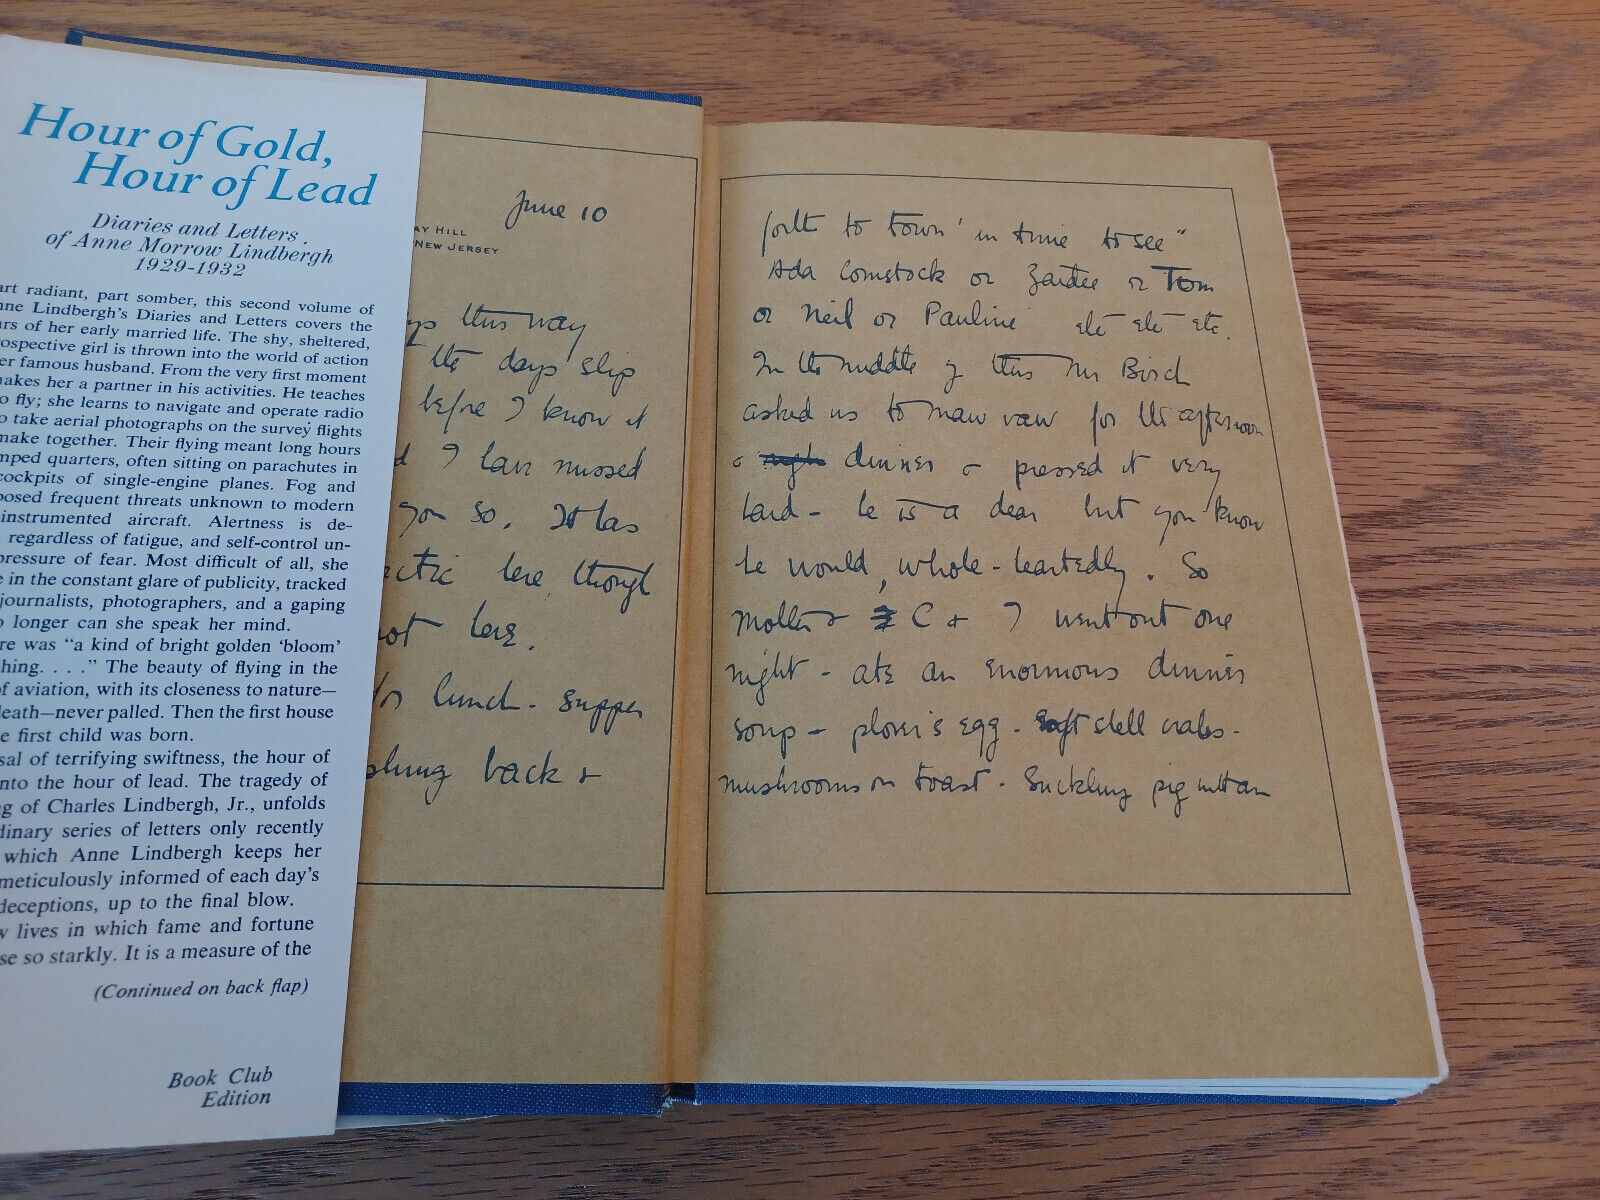 Hour of Gold,
Hour of Lead
Diaries and Letters
of Anne Morrow Lindbergh
1929-1932
art radiant, part somber, this second volume of
nne Lindbergh's Diaries and Letters covers the
ars of her early married life. The shy, sheltered,
rospective girl is thrown into the world of action
er famous husband. From the very first moment
makes her a partner in his activities. He teaches
o fly; she learns to navigate and operate radio
o take aerial photographs on the survey flights
make together. Their flying meant long hours
mped quarters, often sitting on parachutes in
cockpits of single-engine planes. Fog and
posed frequent threats unknown to modern
instrumented aircraft. Alertness is de-
regardless of fatigue, and self-control un-
pressure of fear. Most difficult of all, she
e in the constant glare of publicity, tracked
journalists, photographers, and a gaping
o longer can she speak her mind.
re was "a kind of bright golden 'bloom'
hing. . . ." The beauty of flying in the
of aviation, with its closeness to nature—
death—never palled. Then the first house
e first child was born.
sal of terrifying swiftness, the hour of
nto the hour of lead. The tragedy of
ng of Charles Lindbergh, Jr., unfolds
dinary series of letters only recently
which Anne Lindbergh keeps her
meticulously informed of each day's
deceptions, up to the final blow.
w lives in which fame and fortune
se so starkly. It is a measure of the
(Continued on back flap)
Book Club
Edition
June 10
AY HILL
NEW JERSEY
ys this way
the days slip
before I know it
d I have missed
you so. It has
ectic here though
not here.
for lunch - supper
shing back &
forth to town "in time to see"
Ada Comstock or Zaidee or Tom
or Neil or Pauline etc etc etc.
In the middle of this Mr Birch
asked us to maw vaw for the afternoon
& dinner & pressed it very
hard - he is a dear but you know
he would, whole-heartedly. So
Mother & C & I went out one
night - ate an enormous dinner
soup - plover's egg - soft shell crabs -
mushrooms on toast - suckling pig with an